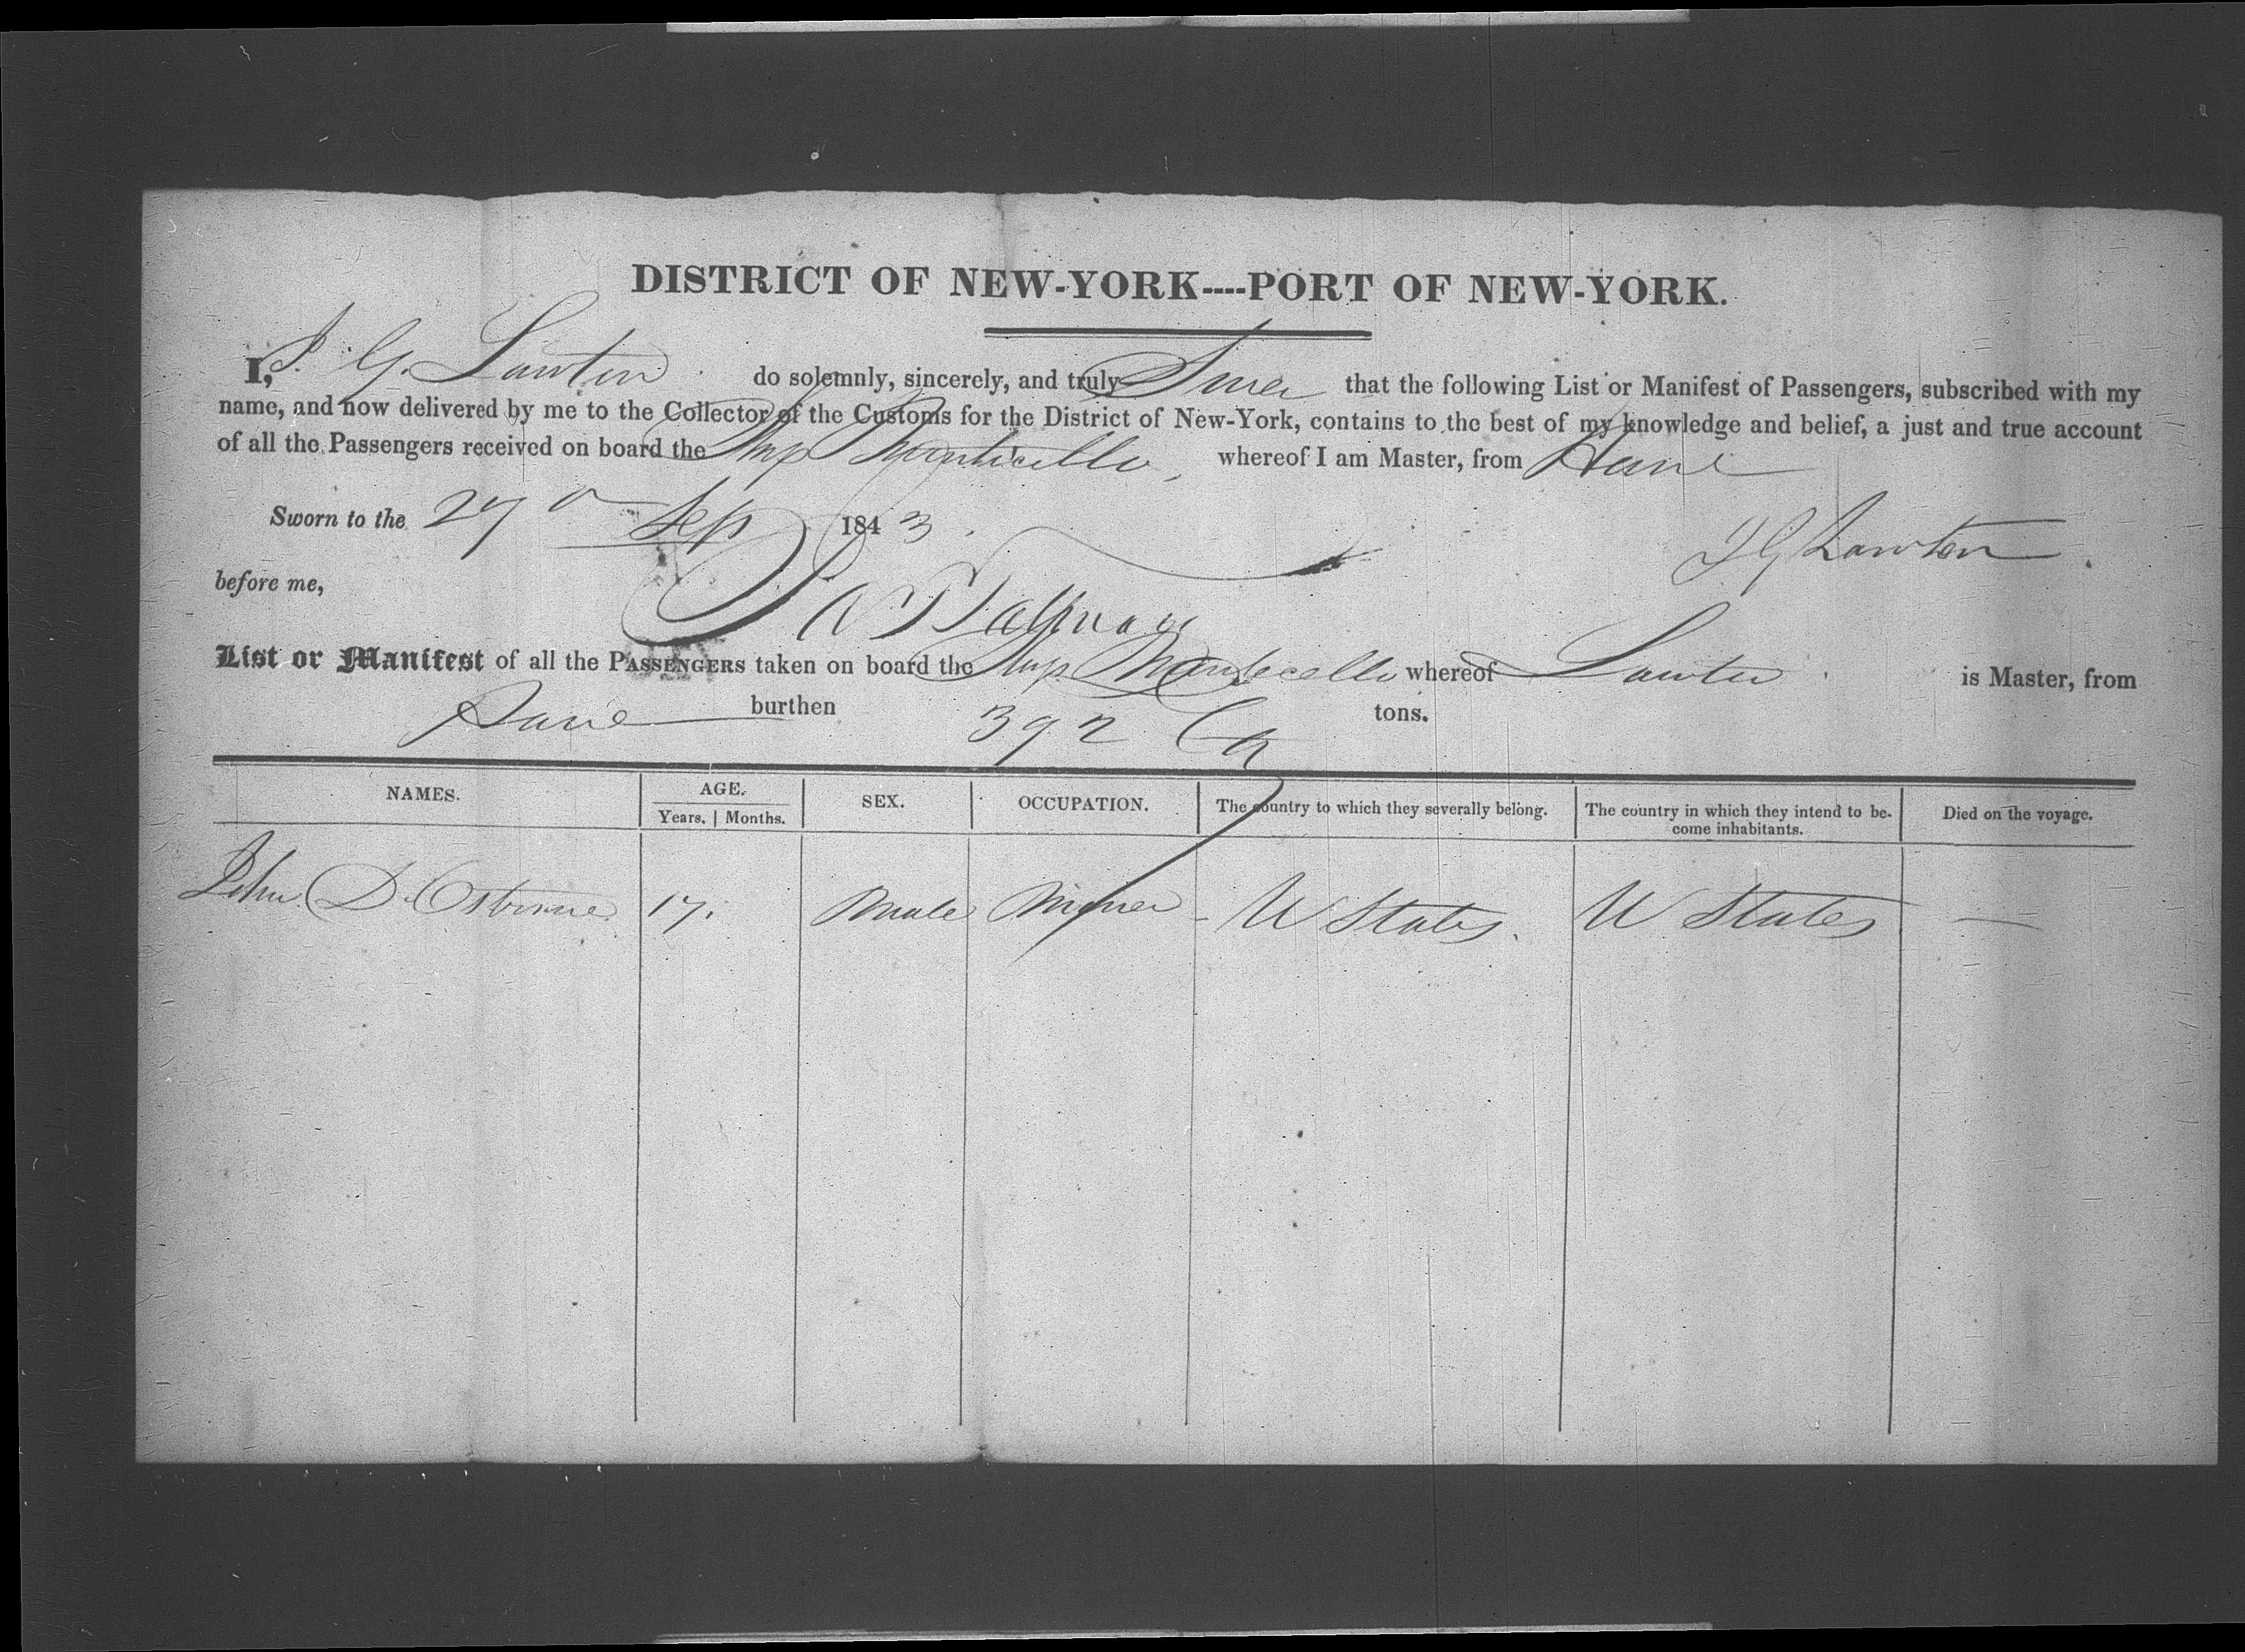 DISTRICT OF NEW-YORK----PORT OF NEW-YORK.
I, J. G. Lawton do solemnly, sincerely, and truly Swear that the following List or Manifest of Passengers, subscribed with my
name, and now delivered by me to the Collector of the Customs for the District of New-York, contains to the best of my knowledge and belief, a just and true account
of all the Passengers received on board the Ship Monticello, whereof I am Master, from Havre
Sworn to the 27 Sep 1843.
J G Lawton
before me,
List or Manifest of all the PASSENGERS taken on board the Ship Monticello whereof Lawton is Master, from
Havre burthen 392 tons.
NAMES. AGE. SEX. OCCUPATION. The country to which they severally belong. The country in which they intend to be-
Years. | Months. come inhabitants. Died on the voyage.
John D. Osborne. 17. Male W States. W States —